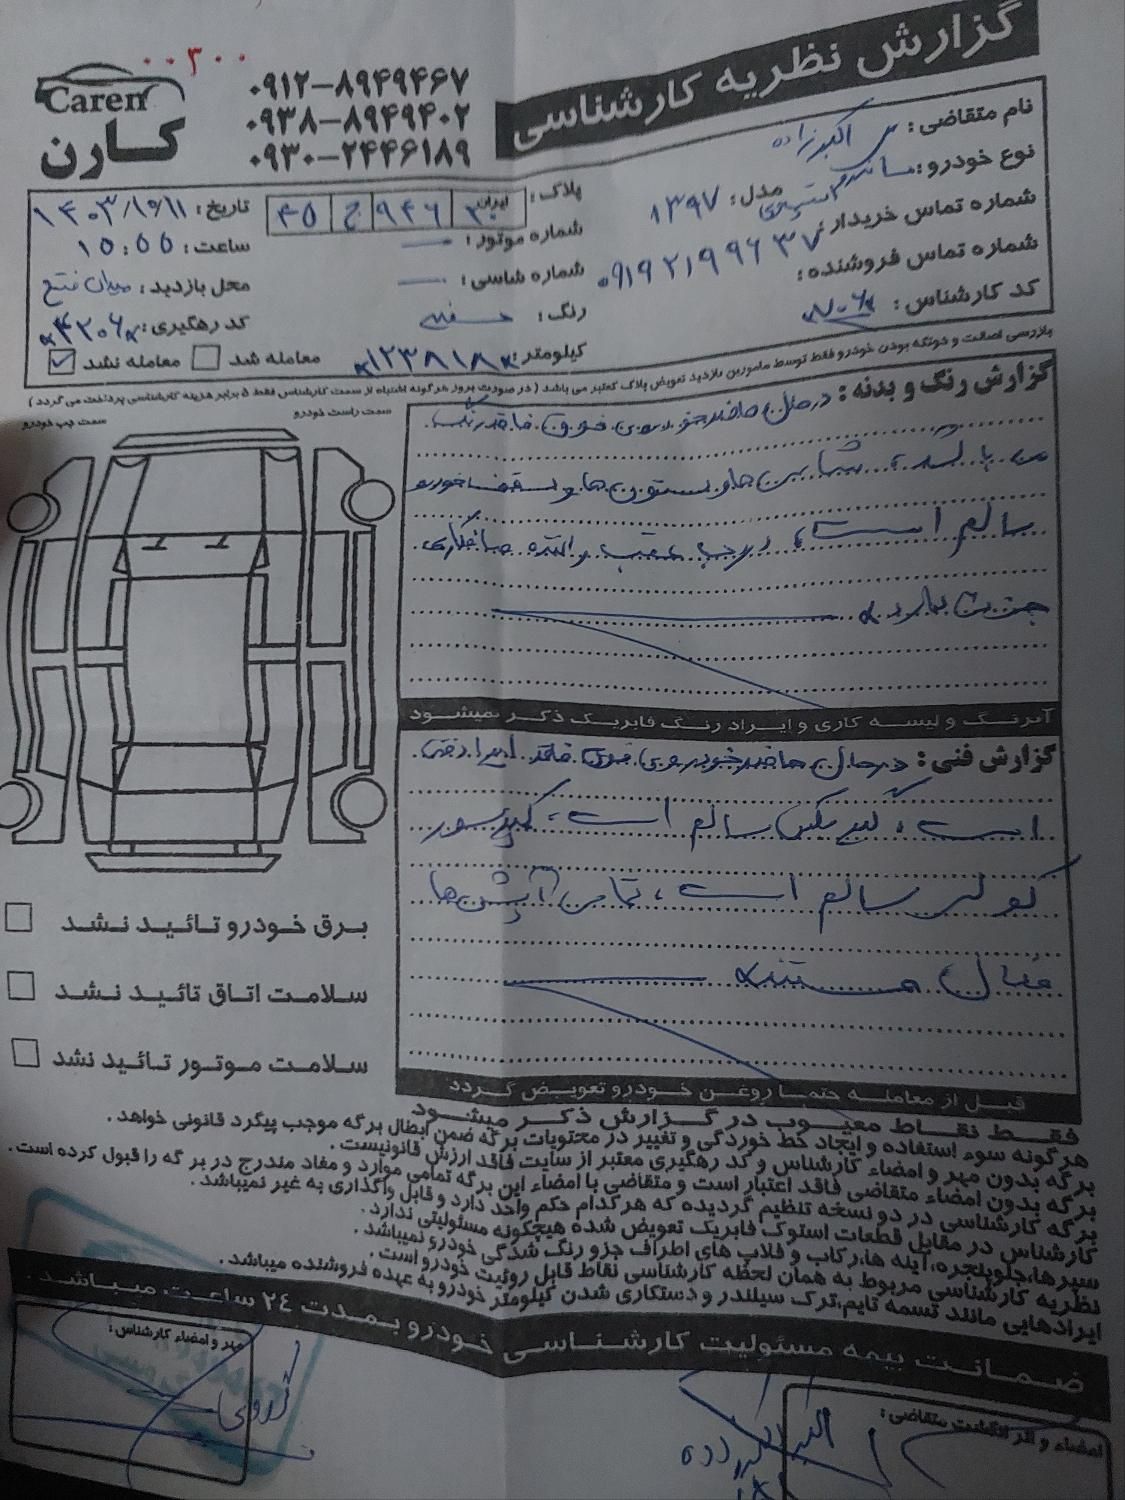 گزارش نظریه کارشناسی
۰۰۳۰۰
Caren
کارن
۰۹۱۲-۸۹۴۹۴۶۷
۰۹۳۸-۸۹۴۹۴۰۲
۰۹۳۰-۲۴۴۶۱۸۹
نام متقاضی: اکبرزاده
نوع خودرو: ساندرو استپوی مدل: ۱۳۹۷
شماره تماس خریدار: ۰۹۱۹۲۱۹۹۶۳۷
شماره تماس فروشنده:
کد کارشناس:
پلاک: ایران ۳۰ ۹۴۶ ج ۴۵
شماره موتور: —
شماره شاسی: —
رنگ: سفید
کیلومتر: ۱۲۳۸۱۸
تاریخ: ۱۴۰۳/۱۰/۱۱
ساعت: ۱۵:۵۵
محل بازدید: میدان فتح
کد رهگیری: ۴۲۰۶
معامله شد معامله نشد
بازرسی اصالت و دوتکه بودن خودرو فقط توسط مامورین بازدید تعویض پلاک معتبر می باشد ( در صورت بروز هرگونه اشتباه از سمت کارشناس فقط ۵ برابر هزینه کارشناسی پرداخت می گردد )
سمت راست خودرو
سمت چپ خودرو
گزارش رنگ و بدنه: درحال حاضر خودروی فوق فاقد رنگ
می باشد، شاسی ها و ستون ها و سقف خودرو
سالم است، درب عقب راننده صافکاری
بی رنگ دارد
آبرنگ و لیسه کاری و ایراد رنگ فابریک ذکر نمیشود
گزارش فنی: درحال حاضر خودروی فوق فاقد ایراد فنی
است، گیربکس سالم است، کمپرسور
کولر سالم است، تمامی آپشن ها
فعال هستند
قبل از معامله حتما روغن خودرو تعویض گردد
برق خودرو تائید نشد
سلامت اتاق تائید نشد
سلامت موتور تائید نشد
فقط نقاط معیوب در گزارش ذکر میشود
هرگونه سوء استفاده و ایجاد خط خوردگی و تغییر در محتویات برگه ضمن ابطال برگه موجب پیگرد قانونی خواهد .
برگه بدون مهر و امضاء کارشناس و کد رهگیری معتبر از سایت فاقد ارزش قانونیست .
برگه بدون امضاء متقاضی فاقد اعتبار است و متقاضی با امضاء این برگه تمامی موارد و مفاد مندرج در برگه را قبول کرده است .
برگه کارشناسی در دو نسخه تنظیم گردیده که هر کدام حکم واحد دارد و قابل واگذاری به غیر نمیباشد .
کارشناس در مقابل قطعات استوک فابریک تعویض شده هیچگونه مسئولیتی ندارد .
سپرها،جلوپنجره،آینه ها،رکاب و فلاپ های اطراف جزو رنگ شدگی خودرو نمیباشد .
نظریه کارشناسی مربوط به همان لحظه کارشناسی نقاط قابل روئیت خودرو است .
ایرادهایی مانند تسمه تایم،ترک سیلندر و دستکاری شدن کیلومتر خودرو به عهده فروشنده میباشد .
ضمانت بیمه مسئولیت کارشناسی خودرو بمدت ۲۴ ساعت میباشد .
مهر و امضاء کارشناس:
امضاء و اثر انگشت متقاضی: